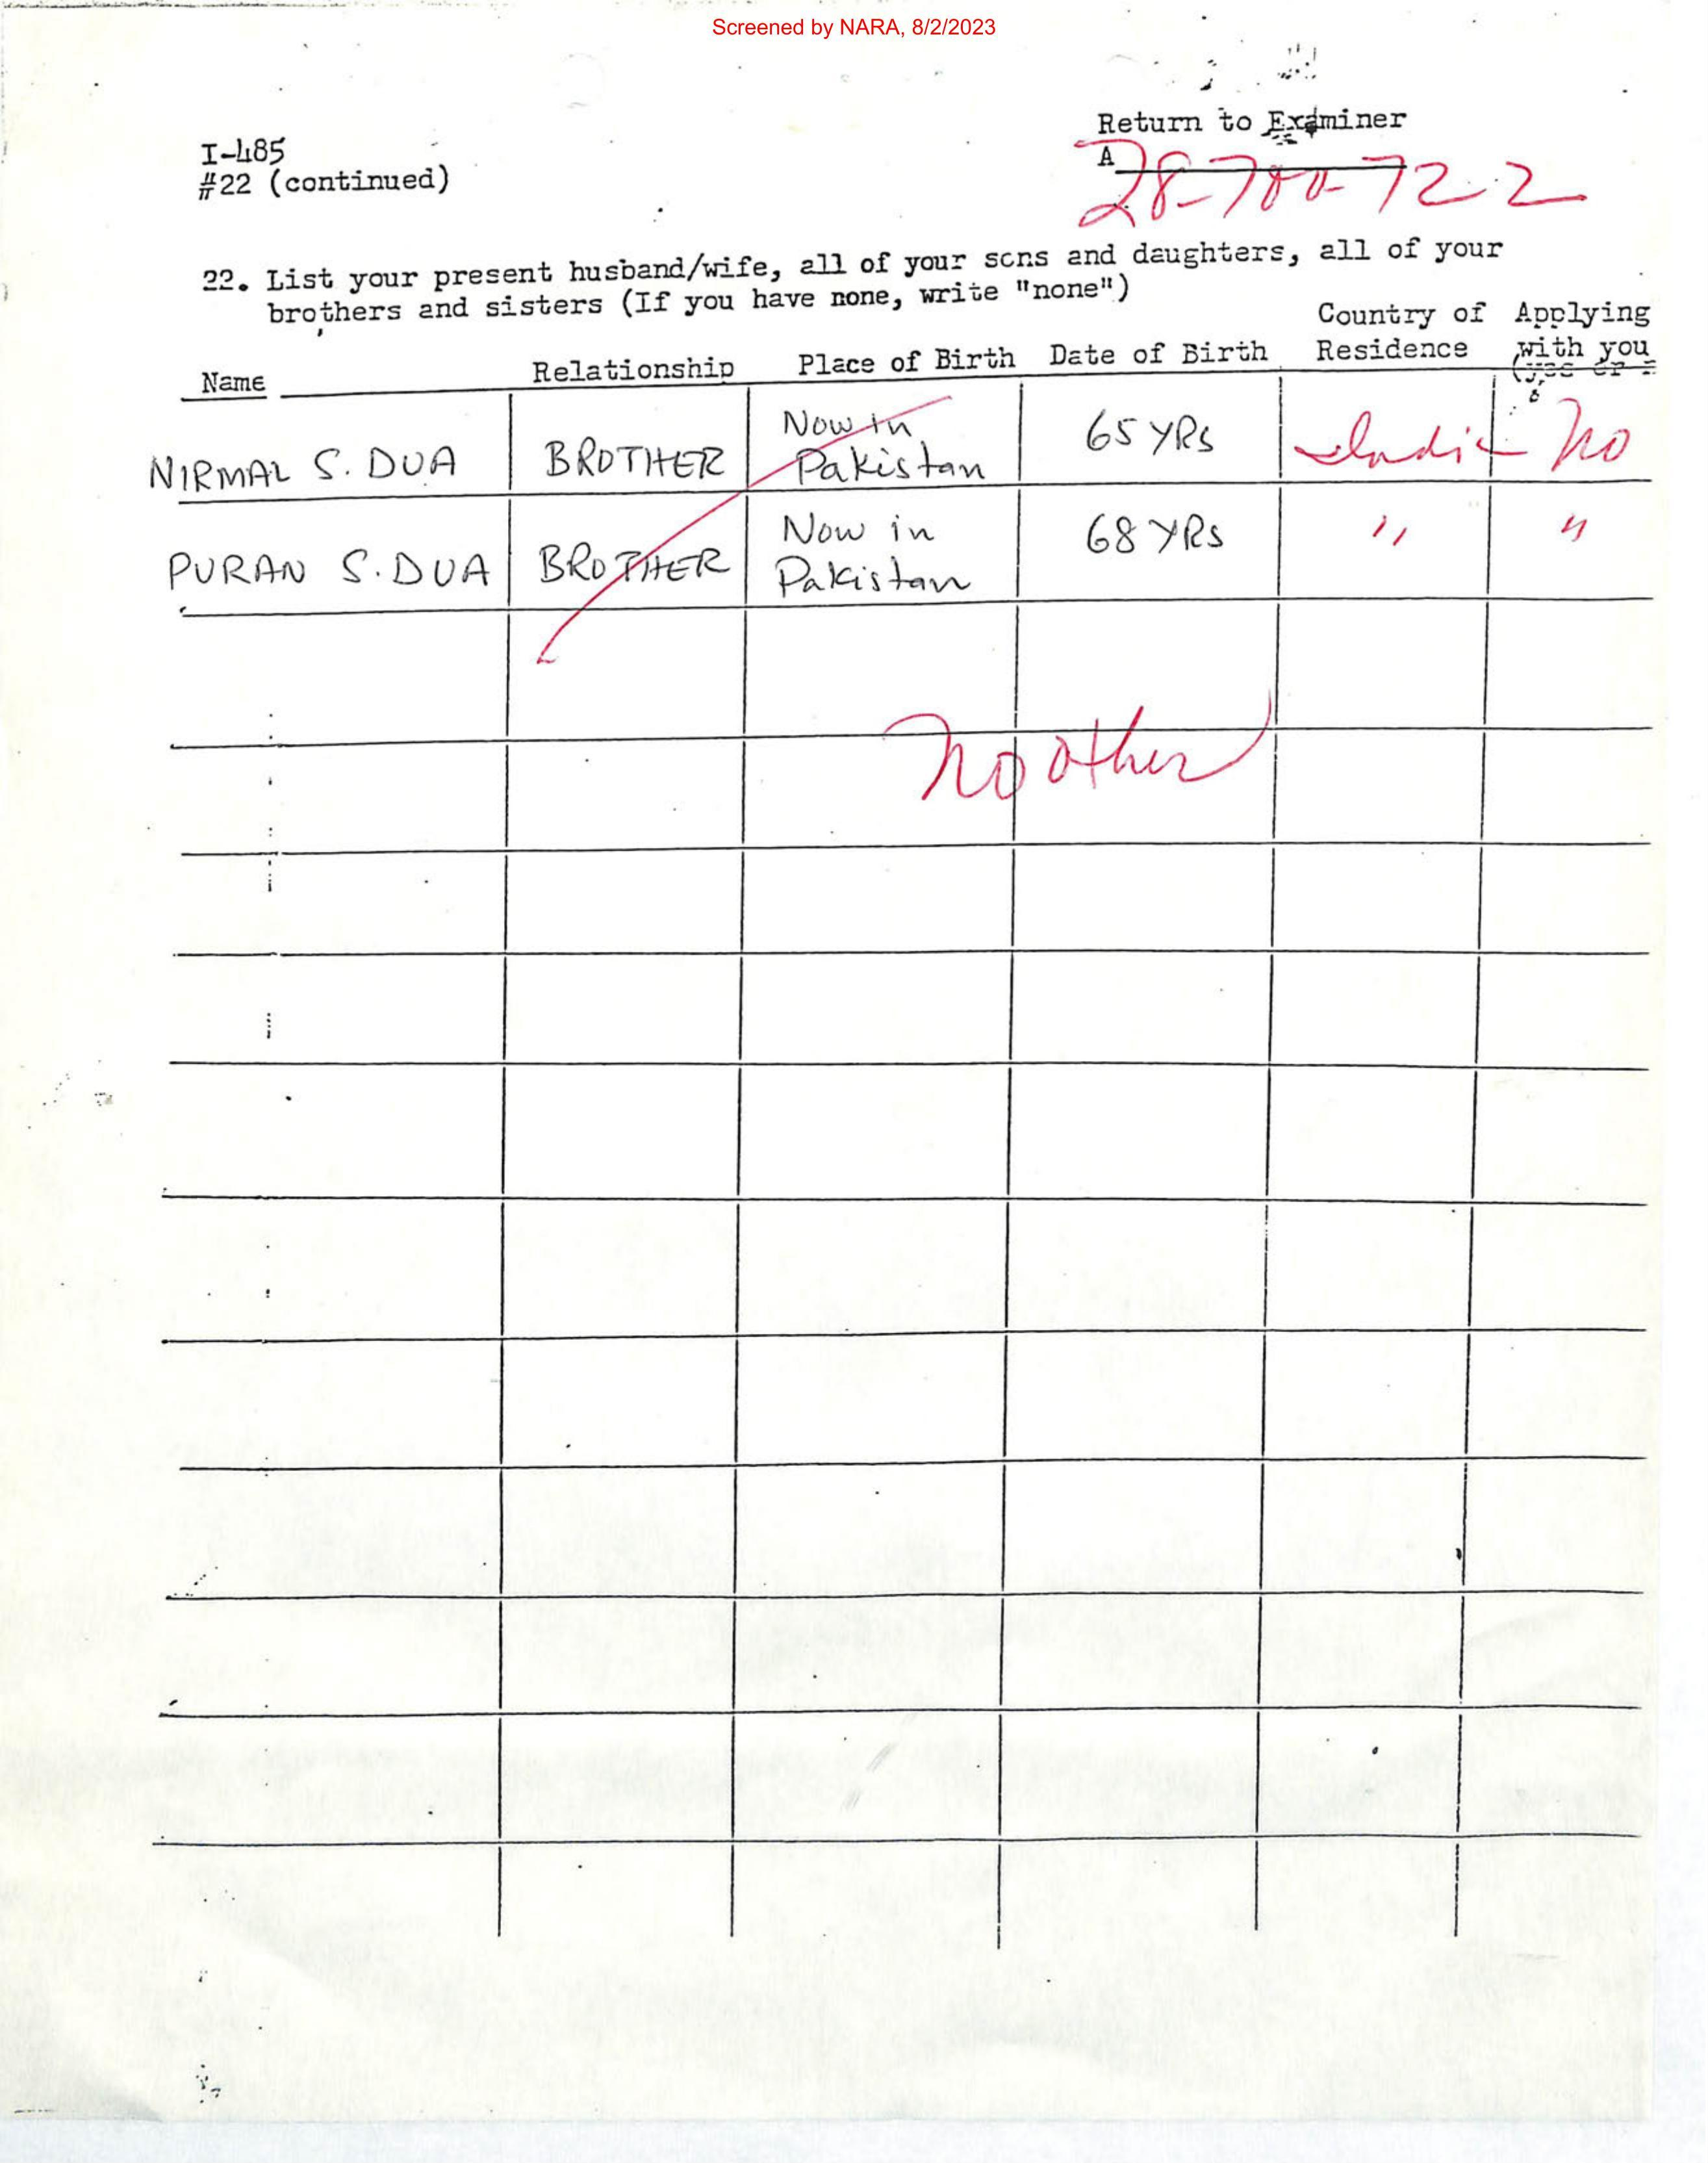 Screened by NARA, 8/2/2023
Return to Examiner
I-485
A 28-700-722
#22 (continued)
22. List your present husband/wife, all of your sons and daughters, all of your
brothers and sisters (If you have none, write "none")
Name Relationship Place of Birth Date of Birth Country of Residence Applying with you (yes or
NIRMAL S. DUA BROTHER Now in Pakistan 65 YRS India No
PURAN S. DUA BROTHER Now in Pakistan 68 YRS " "
No other